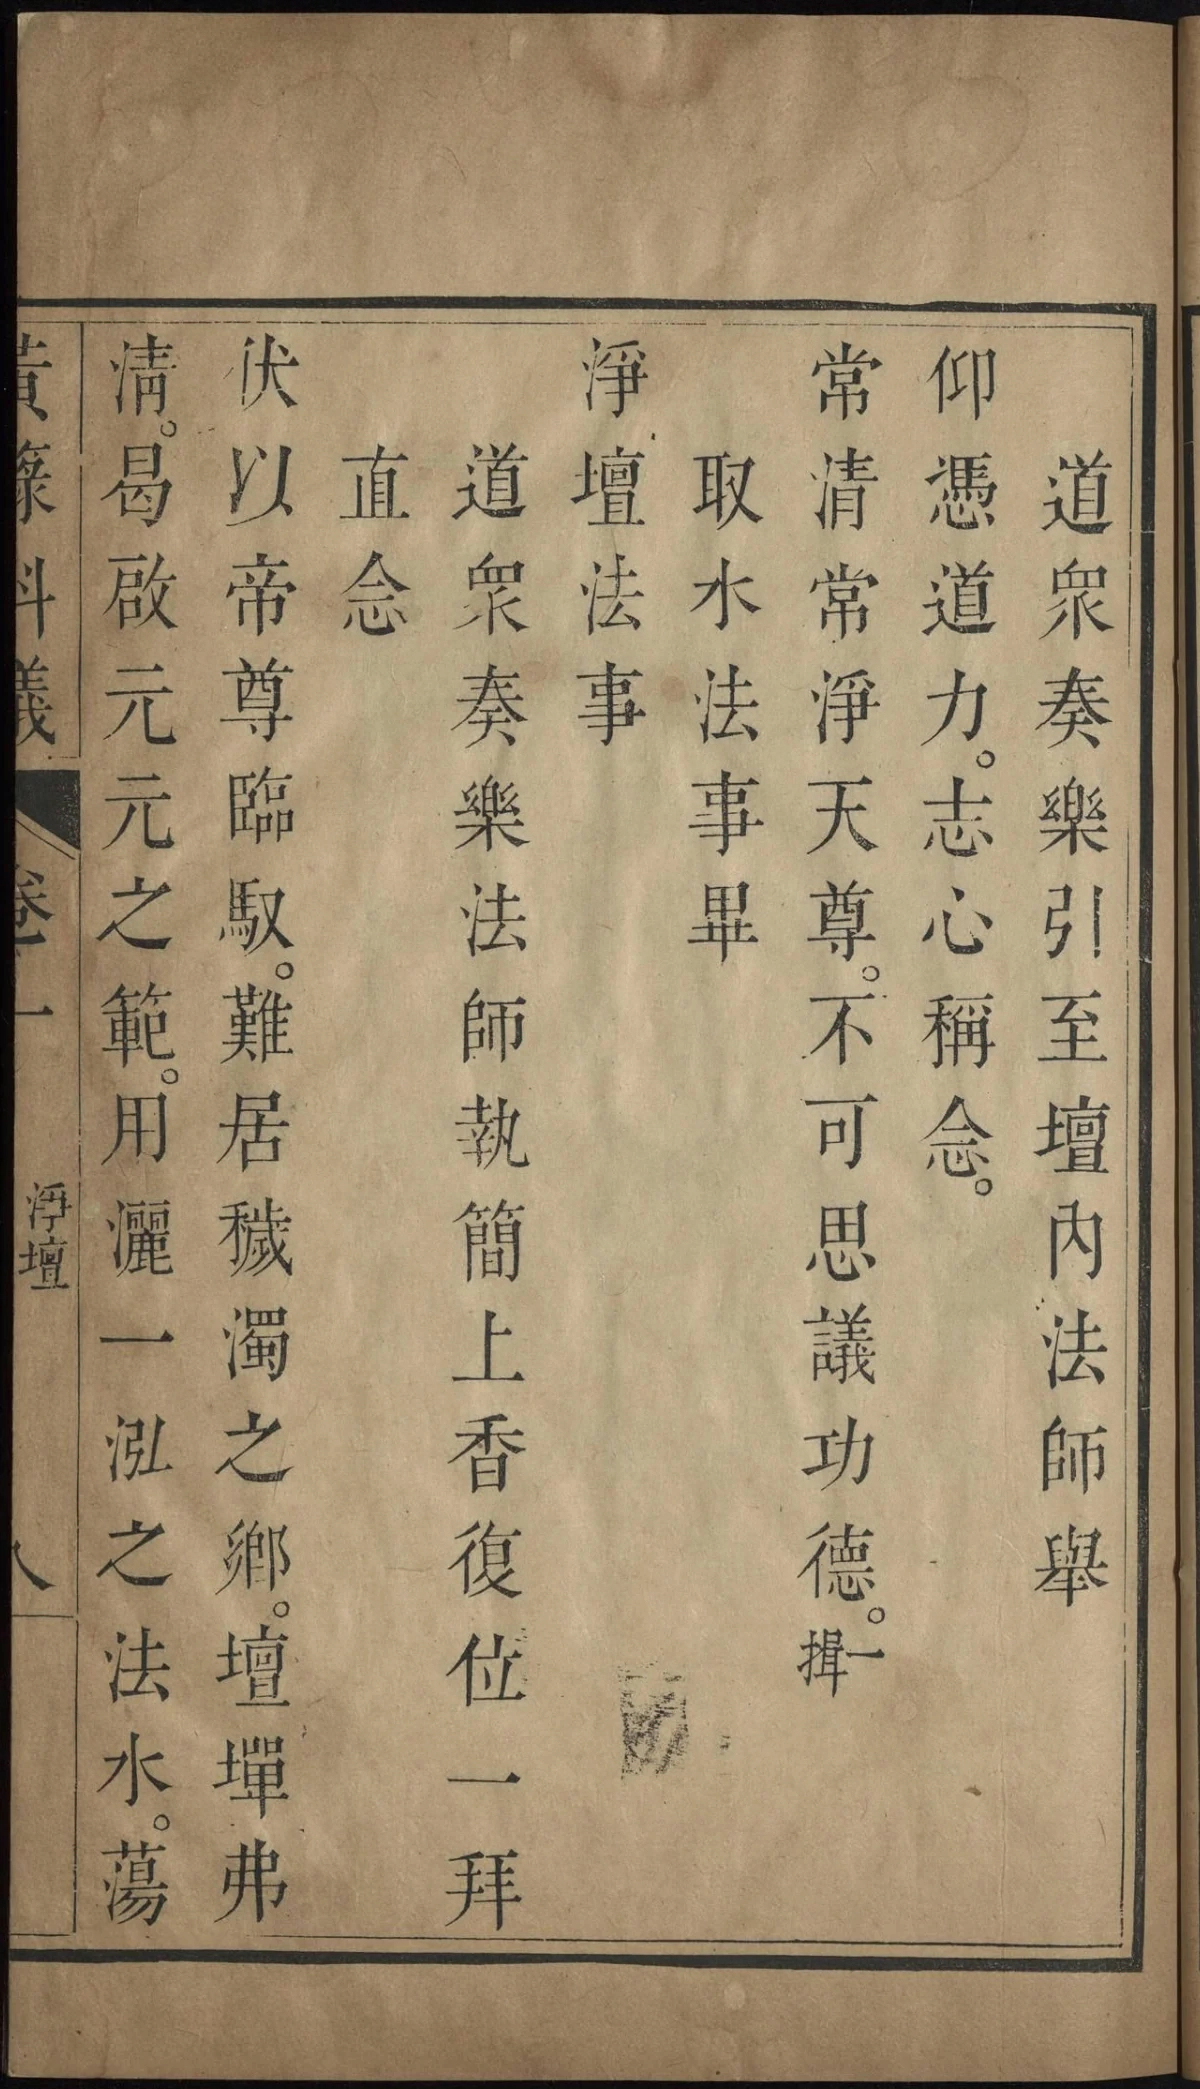 道衆奏樂引至壇內法師舉
仰憑道力。志心稱念。
常清常淨天尊。不可思議功德。一揖
取水法事畢
淨壇法事
道衆奏樂法師執簡上香復位一拜
直念
伏以帝尊臨馭。難居穢濁之鄉。壇墠弗
清。曷啟元元之範。用灑一泓之法水。蕩
黃籙科儀 卷一 淨壇 八